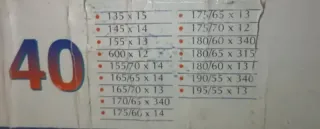 40
135 x 15
145 x 14
155 x 13
600 x 12
155/70 x 14
165/65 x 14
165/70 x 13
170/65 x 340
175/66 x 14
175/65 x 13
175/70 x 12
180/60 x 340
180/65 x 315
180/60 x 13
190/55 x 340
195/55 x 13